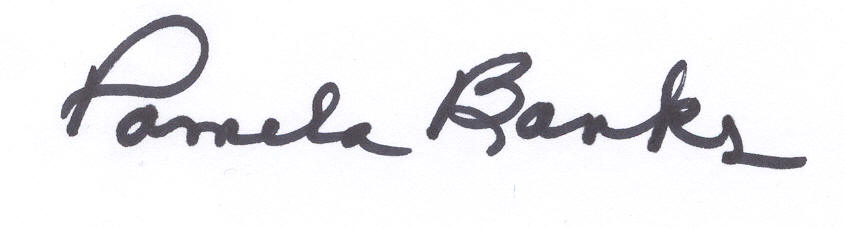 Pamela Banks